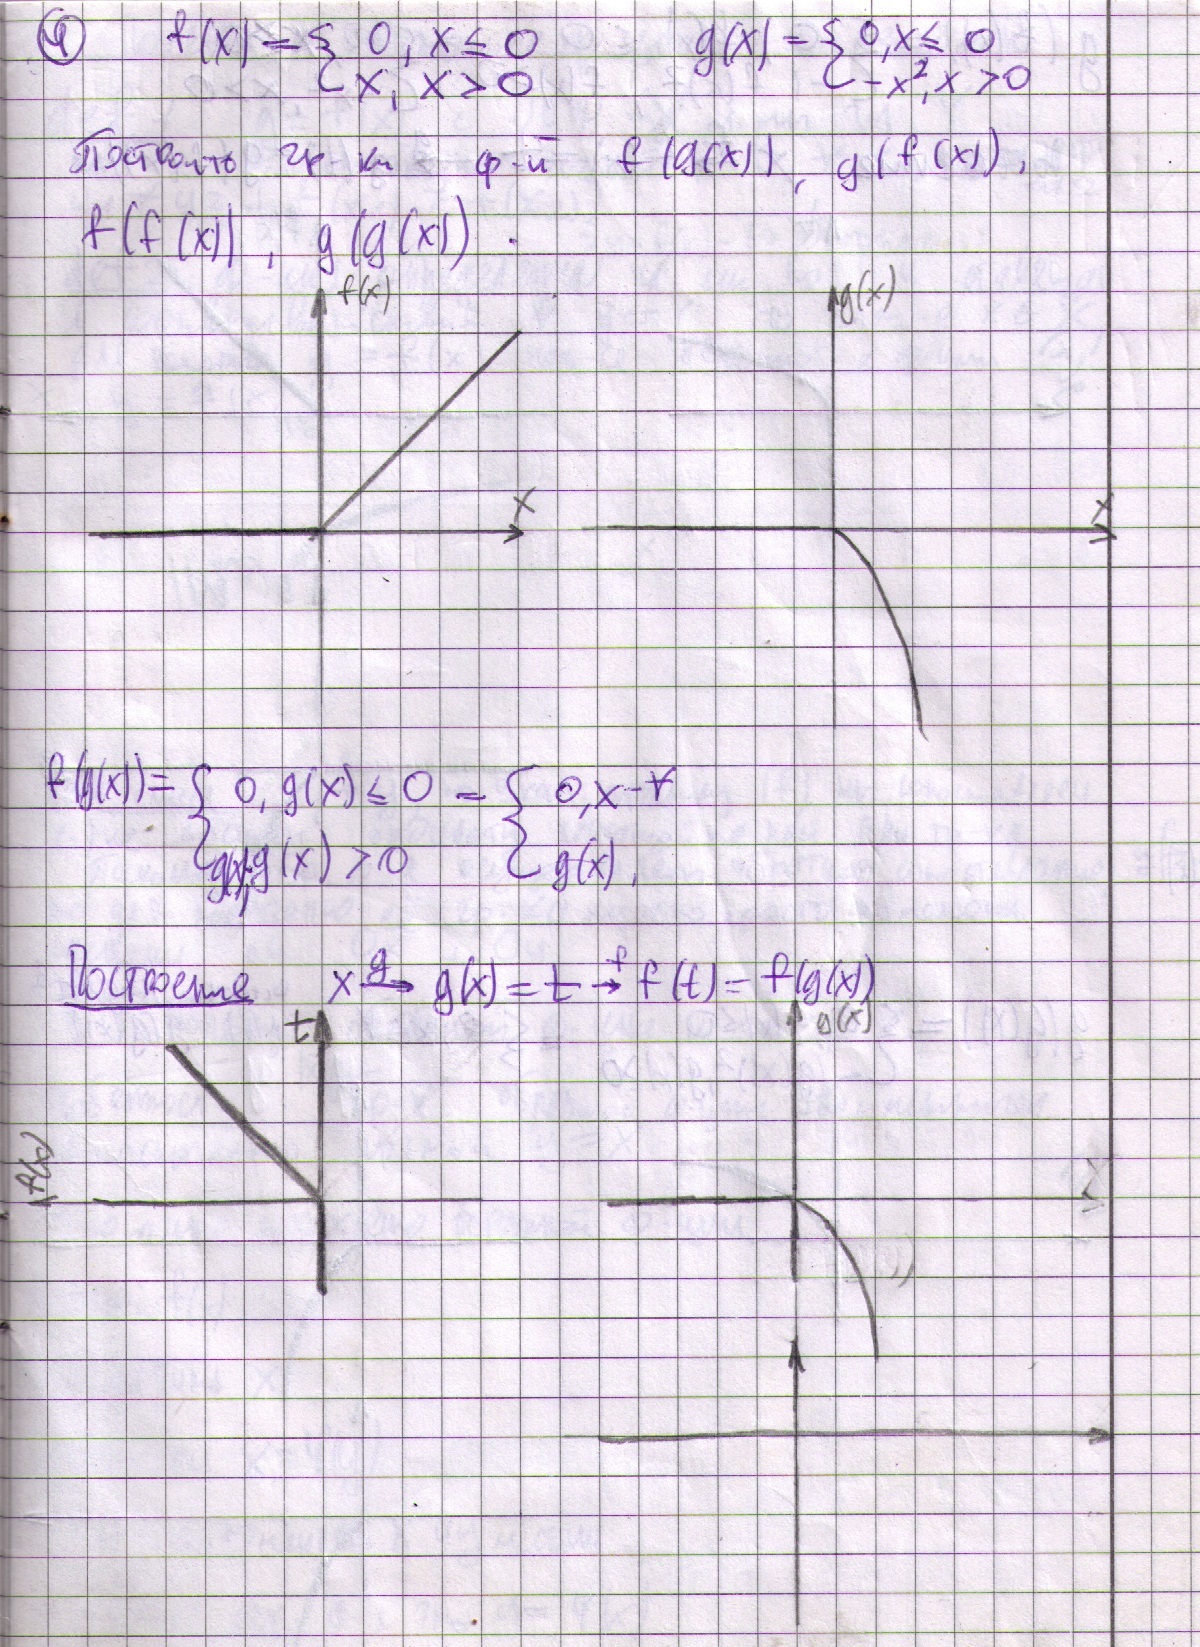 ④ f(x) = { 0, x ≤ 0 g(x) = { 0, x ≤ 0
x, x > 0 -x², x > 0
Построить гр-ки ф-й f(g(x)), g(f(x)),
f(f(x)), g(g(x)).
f(x) g(x)
x x
f(g(x)) = { 0, g(x) ≤ 0 = { 0, x - ∀
g(x), g(x) > 0 g(x),
Построение x →g g(x) = t →f f(t) = f(g(x))
t g(x)
f(x) x